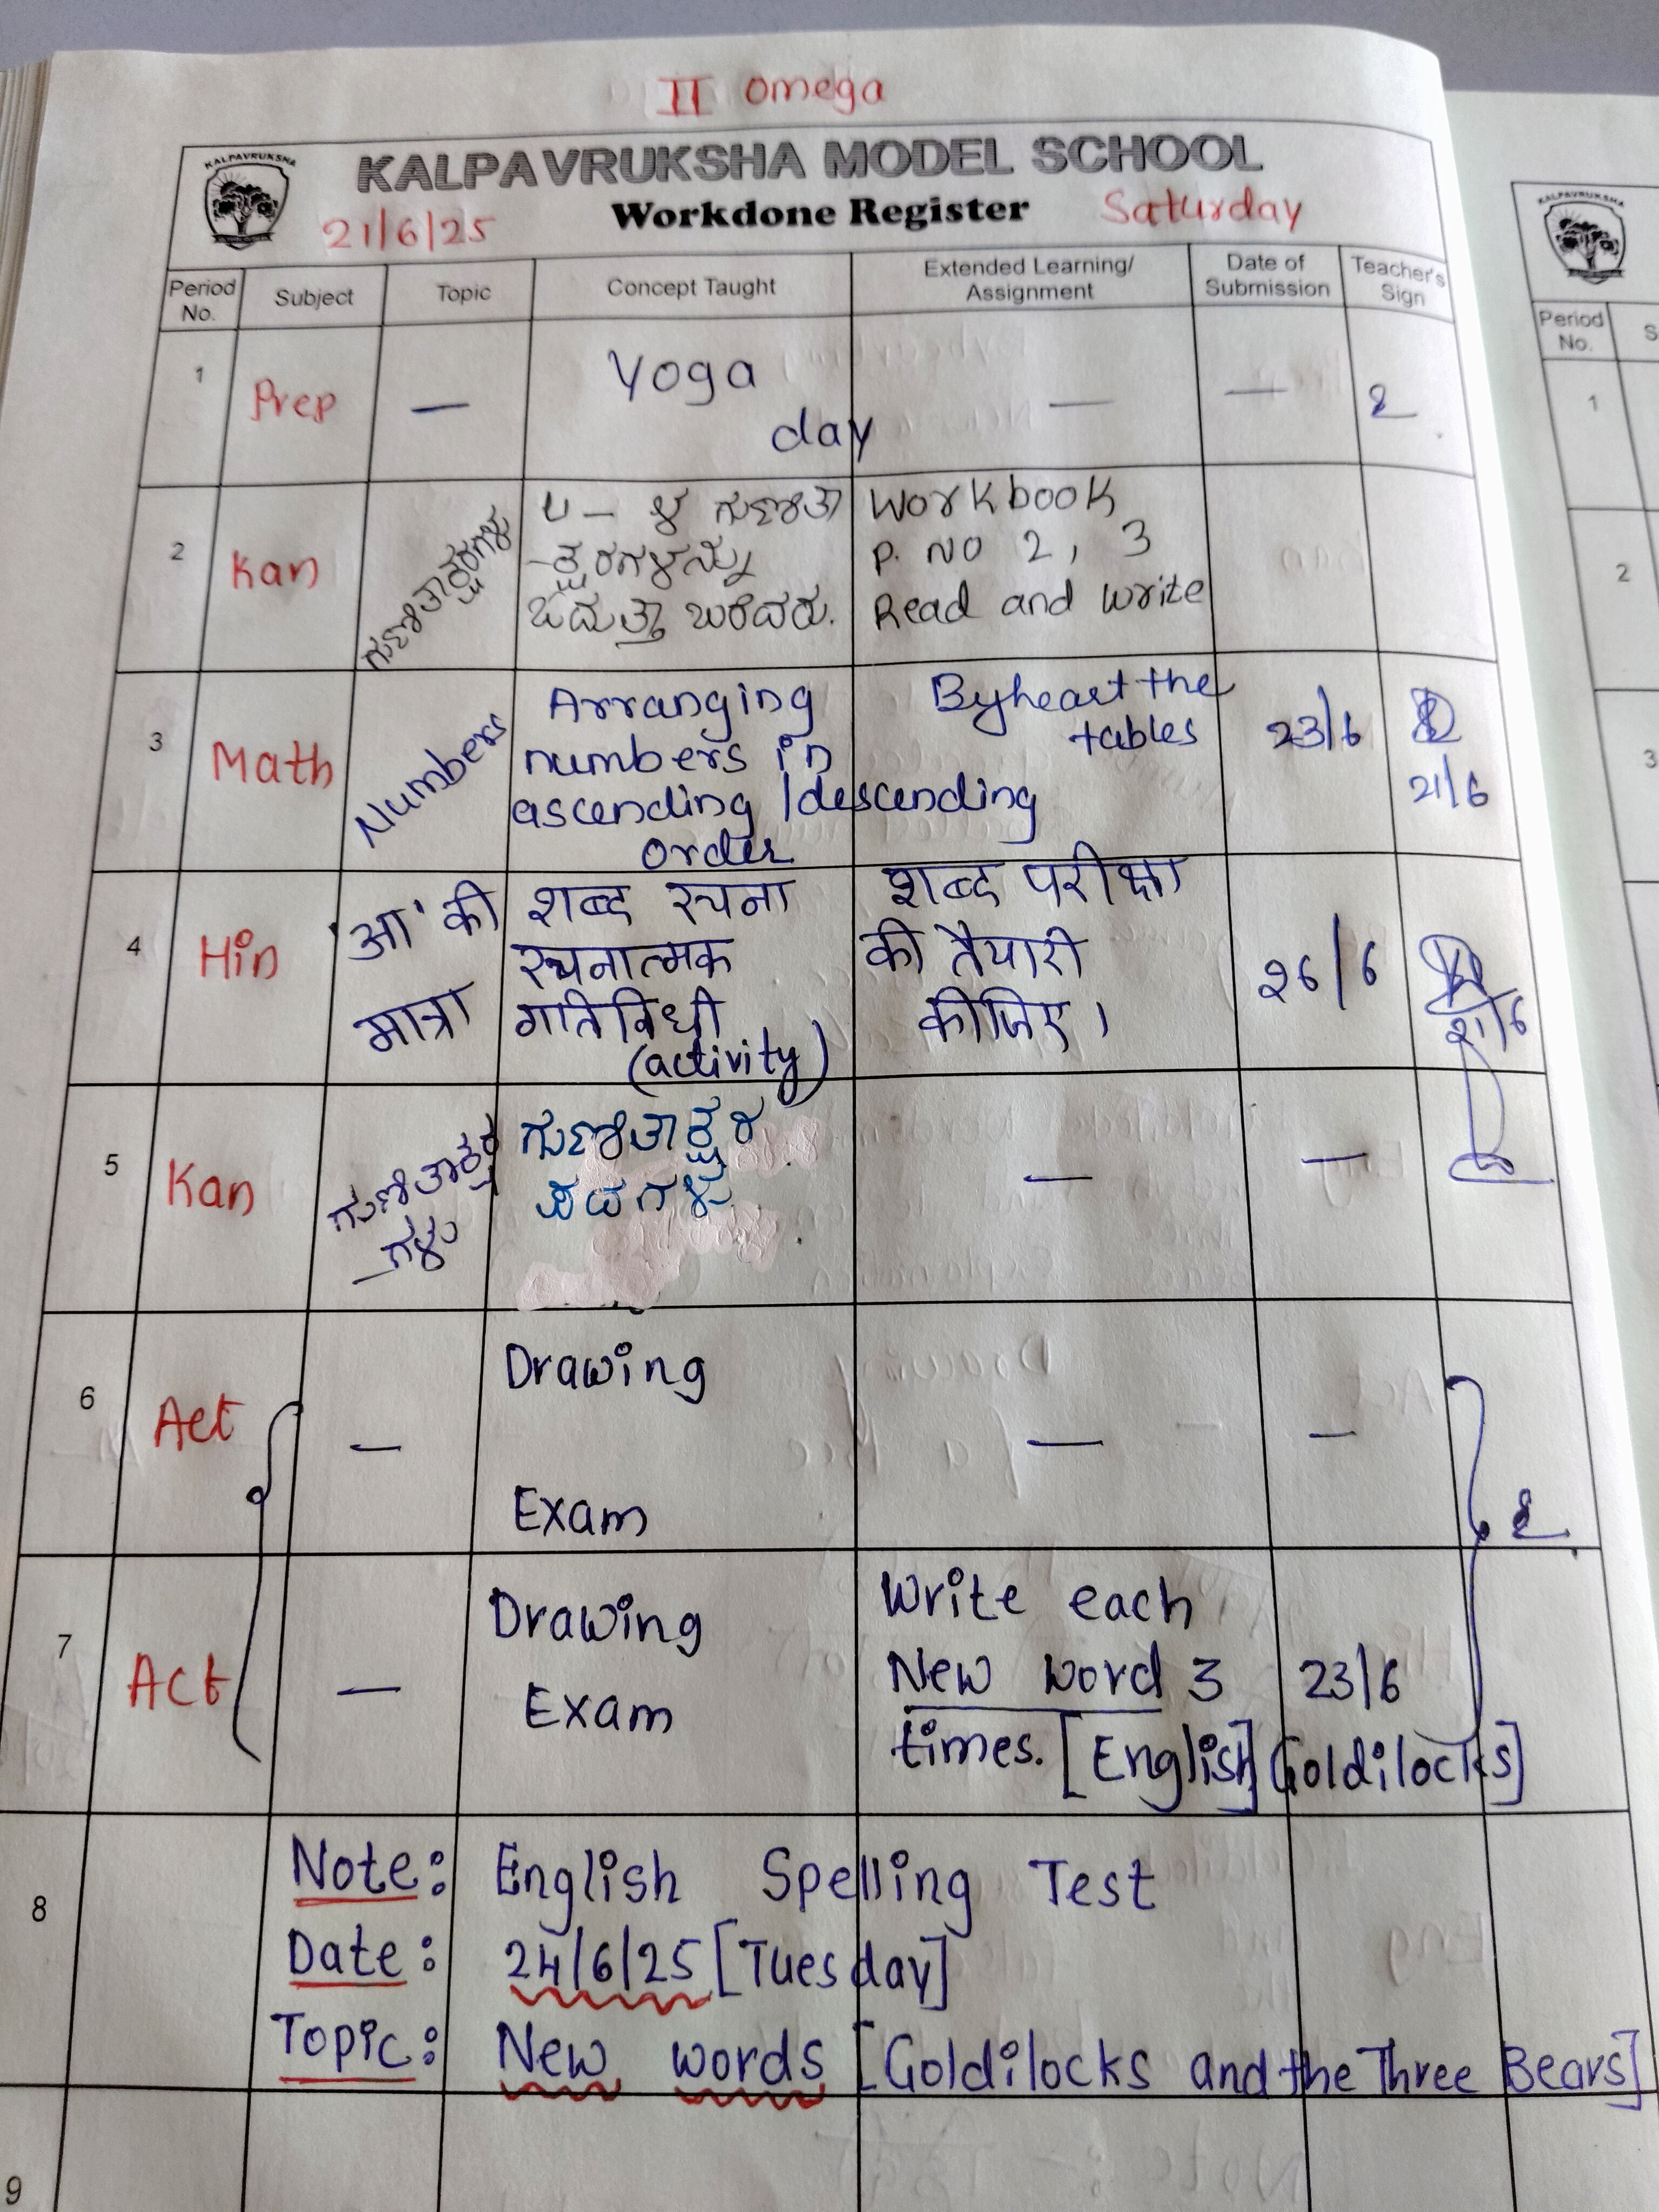 II Omega
KALPAVRUKSHA
KALPAVRUKSHA MODEL SCHOOL
21/6/25 Workdone Register Saturday
Period No. Subject Topic Concept Taught Extended Learning/ Assignment Date of Submission Teacher's Sign
1 Prep — Yoga — —
day
2 Kan ಗುಣಿತಾಕ್ಷರಗಳು
ಗುಣಿತಾ
-ಕ್ಷರಗಳನ್ನು
ಓದುತ್ತಾ ಬರೆದರು.
Workbook
P. No 2, 3
Read and write
3 Math Numbers
Arranging
numbers in
ascending /descending
order
Byheart the
tables
23/6
21/6
4 Hin 'आ' की
मात्रा
शब्द रचना
रचनात्मक
गतिविधी
(activity)
शब्द परीक्षा
की तैयारी
कीजिए।
26/6
21/6
5 Kan ಗುಣಿತಾಕ್ಷರ
_ಗಳು
ಗುಣಿತಾಕ್ಷರ
ಪದಗಳು
— —
6 Act —
Drawing
Exam
— —
7 Act —
Drawing
Exam
Write each
New word 3
times. [English] Goldilocks]
23/6
8 Note: English Spelling Test
Date: 24/6/25 [Tuesday]
Topic: New words [Goldilocks and the Three Bears]
9
KALPAVRUKSHA
Period
No.
1
2
3